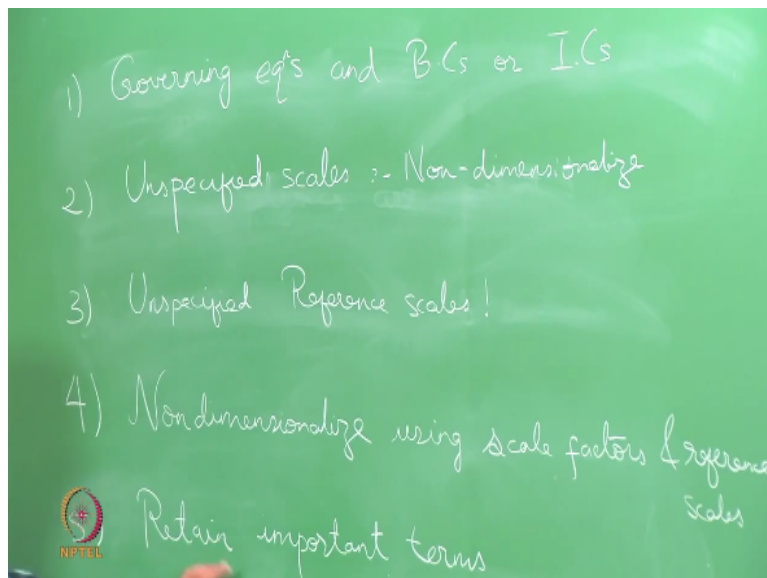 1) Governing eqⁿs and B.Cs or I.Cs
2) Unspecified scales :- Non-dimensionalize
3) Unspecified Reference scales!
4) Nondimensionalize using scale factors & reference
scales
5) Retain important terms
NPTEL